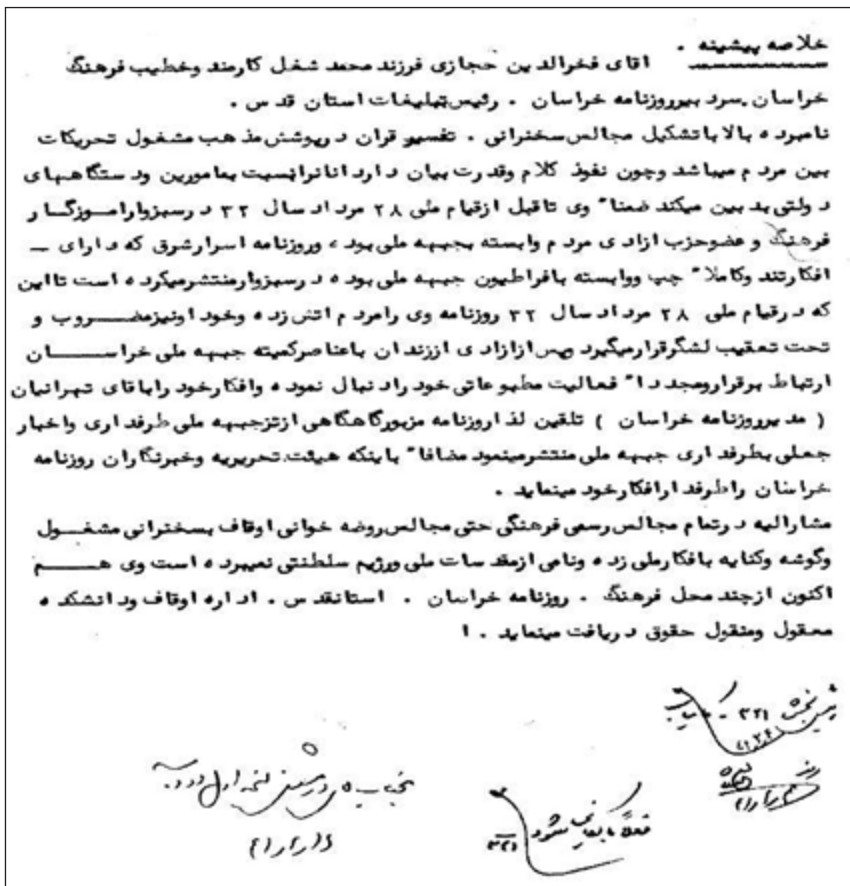 خلاصه پیشینه .
اقای فخرالدین حجازی فرزند محمد شغل کارمند وخطیب فرهنگ
خراسان سرد بیرروزنامه خراسان . رئیس تبلیغات استان قد س .
نامبرد ه بالا باتشکیل مجالس سخنرانی . تفسیر قران د رپوشش مذ هب مشغول تحریکات
بین مرد م میباشد وچون نفوذ کلام وقد رت بیان د ارد انانرانسبت بمامورین ود ستگاههای
د ولتی بد بین میکند ضمنا" وی تاقبل ازقیام ملی ۲۸ مرد اد سال ۳۲ د رسبزوارامــوزگــا ر
فرهنگ و عضوحزب ازاد ی مرد م وابسته بجبهه ملی بود ه وروزنامه اسرارشرق که د ارای ــ
افکارتند وکاملا" چپ ووابسته بافراطیون جبهه ملی بود ه د رسبزوارمنتشرمیکرد ه است تااین
که د رقیام ملی ۲۸ مرد اد سال ۳۲ روزنامه وی رامرد م اتش زد ه وخود اونیزمضــــروب و
تحت تعقیب لشگرقرارمیگیرد وپس ازازاد ی اززند ان باعناصرکمیته جبهه ملی خراســــــان
ارتباط برقرارومجدد ا" فعالیت مطبو عاتی خود راد نبال نمود ه وافکارخود راباقای تهرانیان
( مد یرروزنامه خراسان ) تلقین لذ اروزنامه مزبورگاهگاهی ازتزجبهه ملی طرفد اری واخبار
جعلی بطرفد اری جبهه ملی منتشرمینمود مضافا" باینکه هیئت تحریریه وخبرنگاران روزنامه
خراسان راطرفد ارافکارخود مینماید .
مشارالیه د رتمام مجالس رسمی فرهنگی حتی مجالس روضه خوانی اوقاف بسخنرانی مشغـــول
وگوشه وکنایه بافکارملی زد ه ونامی ازمقد سات ملی ورژیم سلطنتی نمیبرد ه است وی هـــــم
اکنون ازچند محل فرهنگ . روزنامه خراسان . استانقد س . اد اره اوقاف ود انشکد ه
معقول ومنقول حقوق د ریافت مینماید . ا
۳۲۱
فعلاً بایگانی شود
۳۲۱